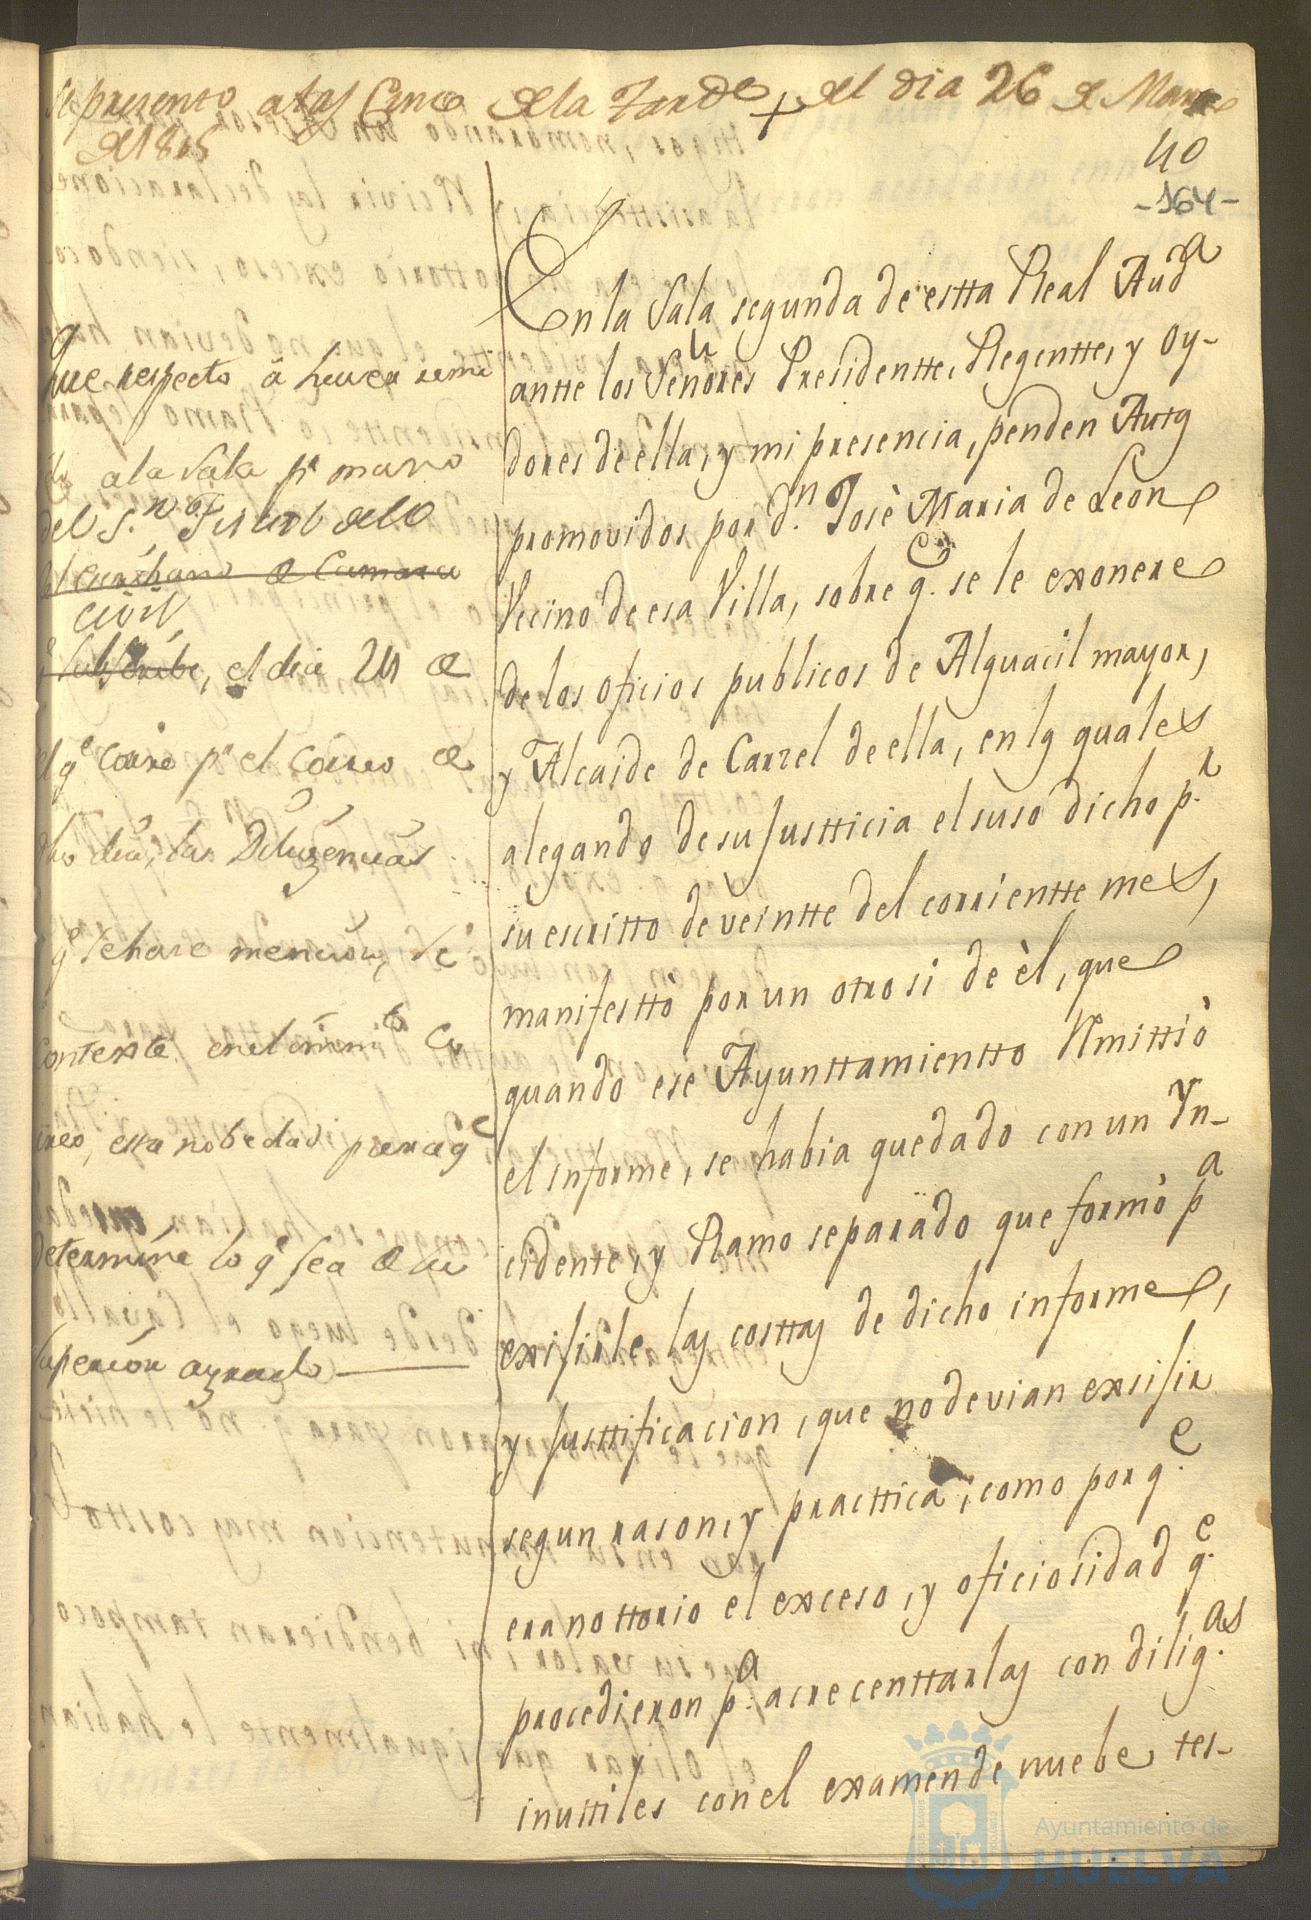 Se presento a las Cinco de la Tarde del dia 26 de Marzo
de 1805
40
-164-
En la Sala segunda de estta Real Audª
antte los Señores Presidentte, Regentte, y Oy-
dores de ella, y mi presencia, penden Autos
promovidos por dn. Josè Maria de Leon
Vecino de esa Villa, sobre q.e se le exonere
de los oficios publicos de Alguacil mayor,
y Alcaide de Carzel de ella, en los quales
alegando de su Justticia el suso dicho p.r
su escritto de veintte del corrientte mes,
manifesttò por un otrosi de èl, que
quando ese Ayunttamientto Remittiò
el informe, se habia quedado con un Yn-
cidente, y Ramo separado que formò pª
exijirle las costtas de dicho informe,
y Justtificacion, que no devian exsijir
segun rason, y practtica, como por q.e
era nottorio el exceso, y oficiosidad q.e
procedieron p.ª acrecenttarlas con dilig.as
inuttiles con el examen de nuebe tes-
que respecto à haver remi
a la Sala pr mano
del S.n Fiscal de lo
civil
Escribano de Camara
subscribe, el dia 24 de
el qe corre pr el correo de
dho dia, las Diligencias
qe se hace mencion, se
contexte en el mismo
esta nobedad para qe
determine lo qe sea de su
superior agrado
Ayuntamiento de
HUELVA